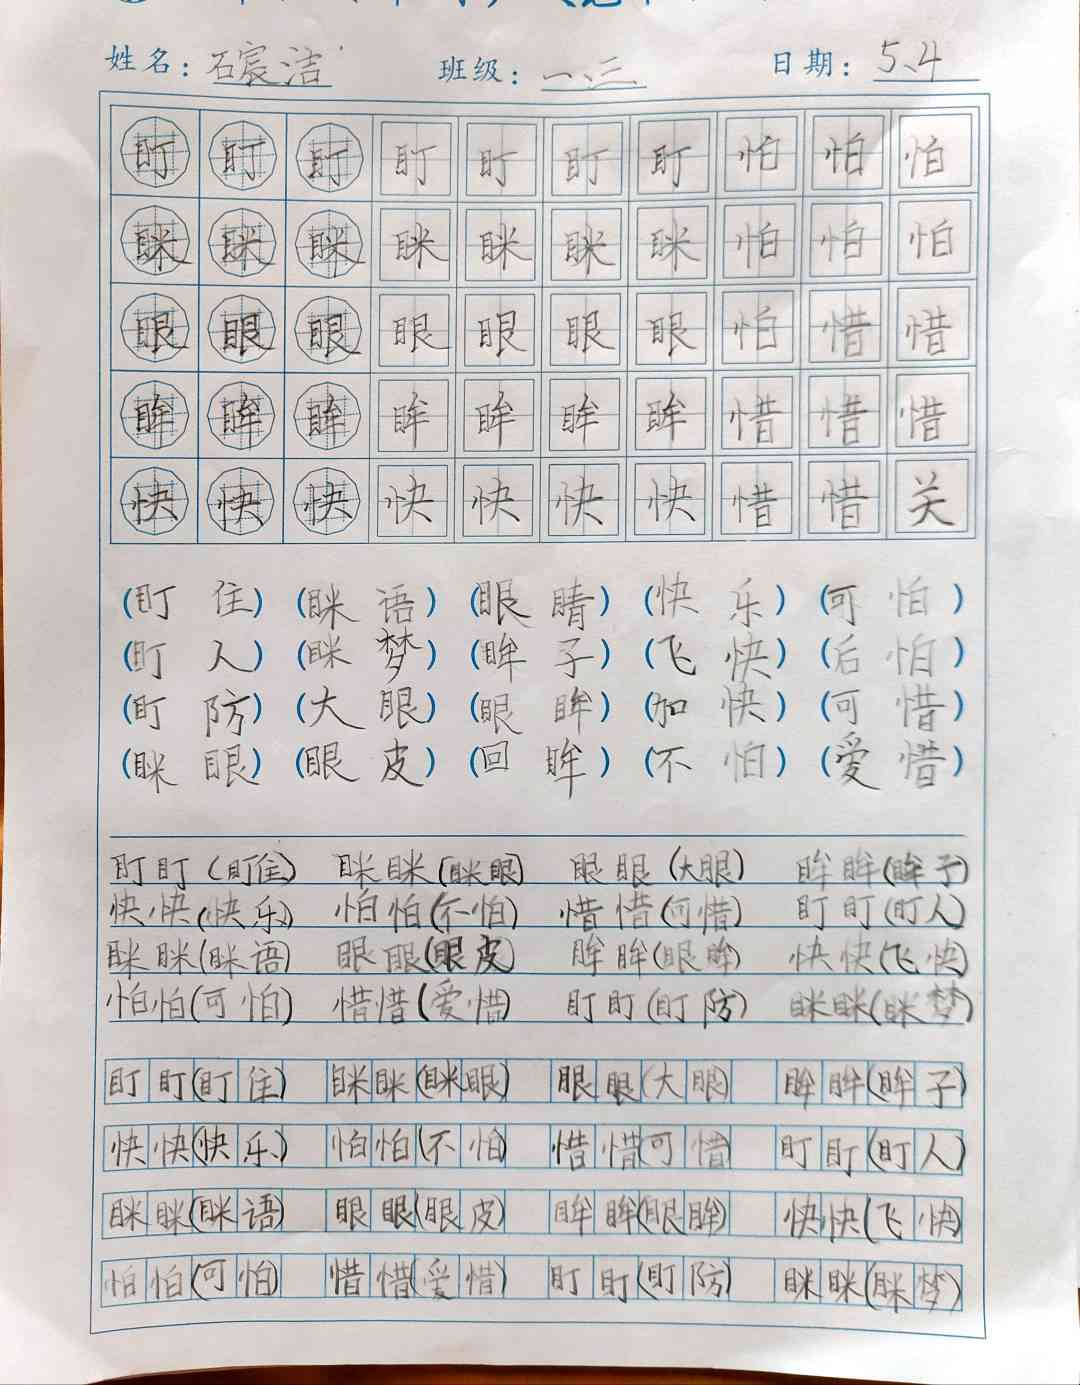 姓名：石宸洁 班级：一、三 日期：5.4
盯 盯 盯 盯 盯 盯 盯 怕 怕 怕
眯 眯 眯 眯 眯 眯 眯 怕 怕 怕
眼 眼 眼 眼 眼 眼 眼 怕 惜 惜
眸 眸 眸 眸 眸 眸 眸 惜 惜 惜
快 快 快 快 快 快 快 惜 惜 关
(盯 住) (眯 语) (眼 睛) (快 乐) (可 怕)
(盯 人) (眯 梦) (眸 子) (飞 快) (后 怕)
(盯 防) (大 眼) (眼 眸) (加 快) (可 惜)
(眯 眼) (眼 皮) (回 眸) (不 怕) (爱 惜)
盯 盯 (盯住) 眯 眯 (眯眼) 眼 眼 (大眼) 眸 眸 (眸子)
快 快 (快乐) 怕 怕 (不怕) 惜 惜 (可惜) 盯 盯 (盯人)
眯 眯 (眯语) 眼 眼 (眼皮) 眸 眸 (眼眸) 快 快 (飞快)
怕 怕 (可怕) 惜 惜 (爱惜) 盯 盯 (盯防) 眯 眯 (眯梦)
盯 盯 (盯住) 眯 眯 (眯眼) 眼 眼 (大眼) 眸 眸 (眸子)
快 快 (快乐) 怕 怕 (不怕) 惜 惜 (可惜) 盯 盯 (盯人)
眯 眯 (眯语) 眼 眼 (眼皮) 眸 眸 (眼眸) 快 快 (飞快)
怕 怕 (可怕) 惜 惜 (爱惜) 盯 盯 (盯防) 眯 眯 (眯梦)